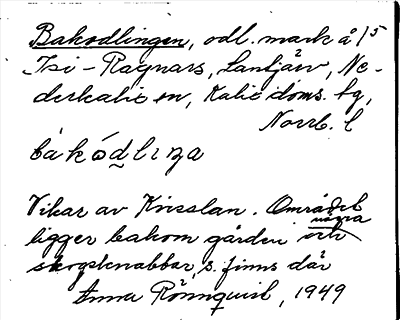 Bakodlingen, odl. mark å 15
Isi-Ragnars, Lantjärv, Ne-
derkalix sn, Kalix doms. bg,
Norrb. l
båkódlıŋa
Vikar av Kvisslan. Området
ligger bakom gården och några
skogsknabbar, s. finns där
Anna Rönnquist, 1949